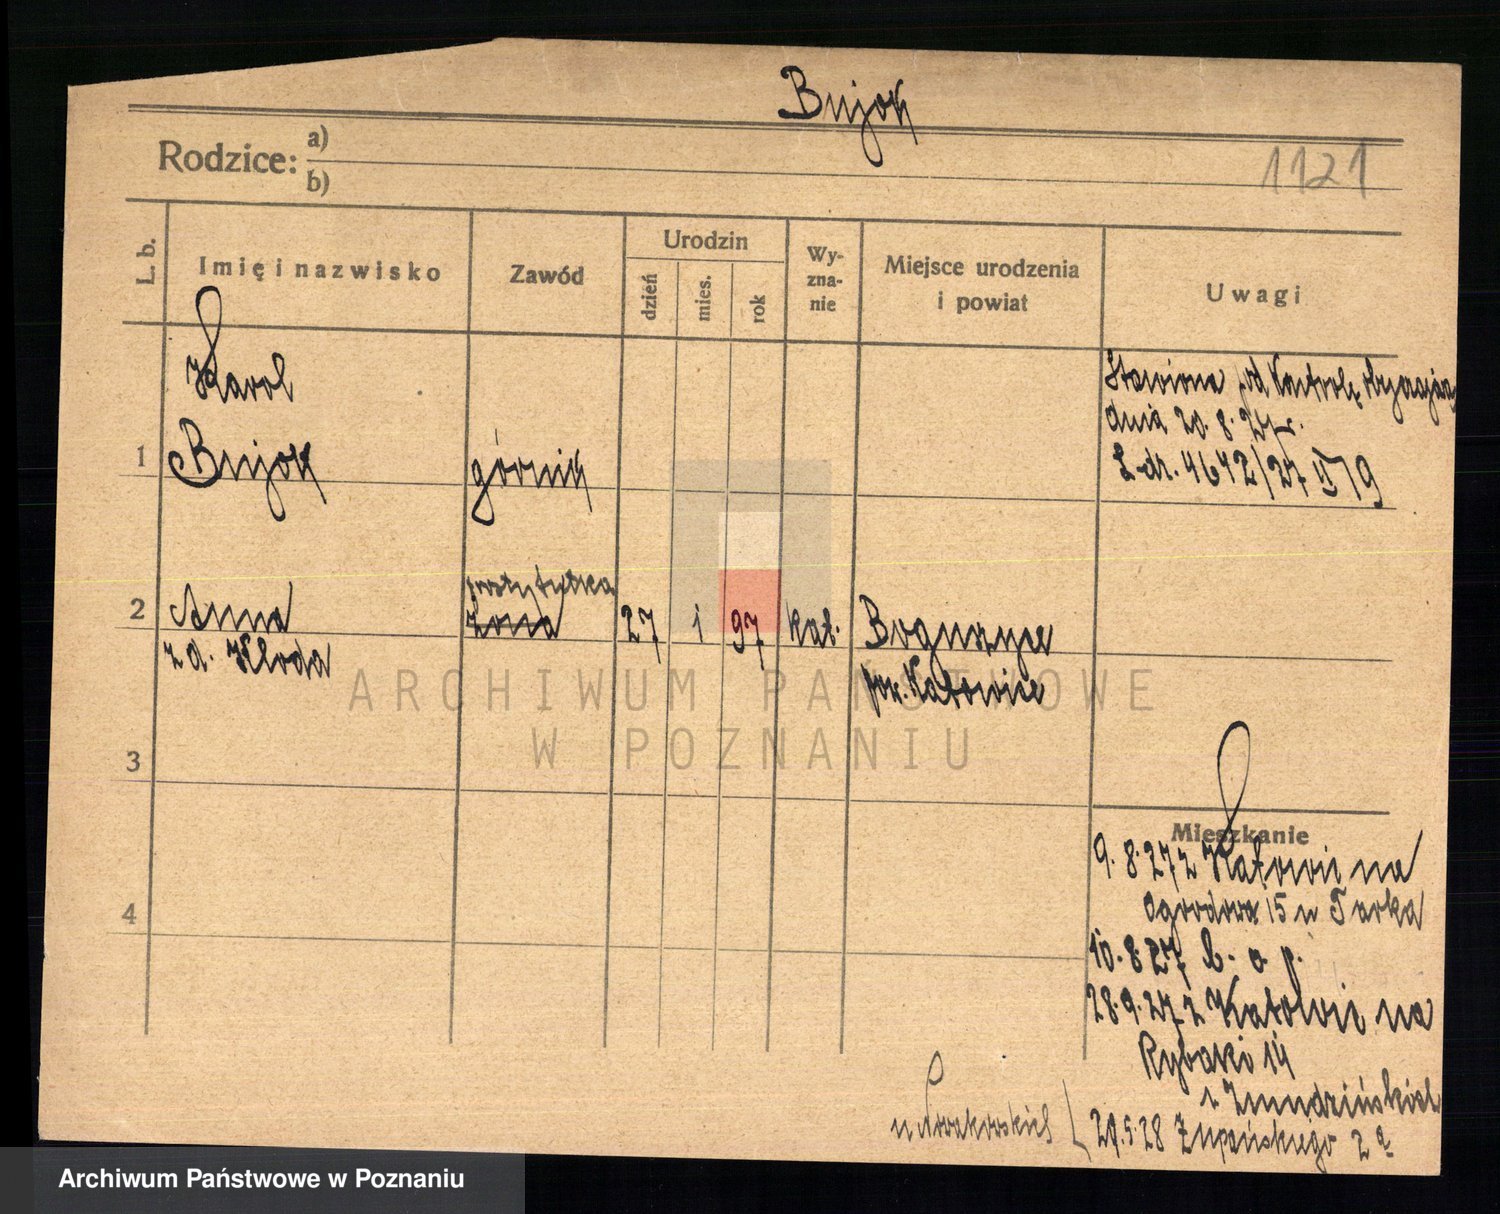 Bujok
Rodzice: a)
b)
1121
L. b.
Imię i nazwisko
Zawód
Urodzin
dzień
mies.
rok
Wy-
zna-
nie
Miejsce urodzenia
i powiat
Uwagi
Karol
1 Bujok górnik
Stawiona pod kontrolę obyczajową
dnia 20.8.27 r.
L.dz. 4642/27 II/9
prostytutka
2 Anna żona 27 1 97 kat. Boguszyce
z d. Kłoda pow. Katowice
ARCHIWUM PAŃSTWOWE
W POZNANIU
3
Mieszkanie
9.8.27 z Katowic na
Ogrodowa 15 u Tarka
4
10.8.27 b. o. p.
28.9.27 z Katowic na
Rybaki 14
u Żmudzińskich
u Nowakowskich 29.5.28 Żupańskiego 2a
Archiwum Państwowe w Poznaniu